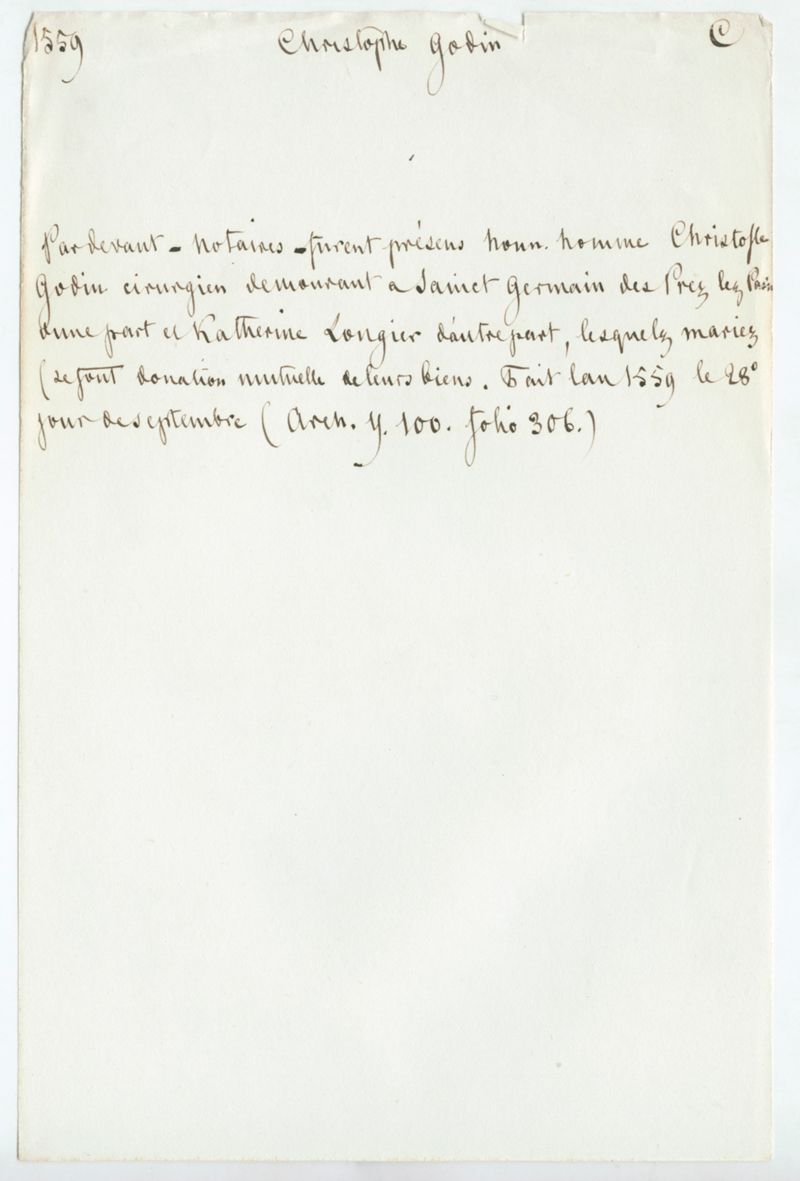 1559 Christophe Godin C
Pardevant - notaires - furent présens honn. homme Christofle
Godin cirurgien demourant a Sainct Germain des Prez lez Paris
dune part et Katherine Longier d'autre part, lesquelz mariez
(se font donation mutuelle de leurs biens. Fait lan 1559 le 28e
jour de septembre (Arch. Y. 100. folio 306.)